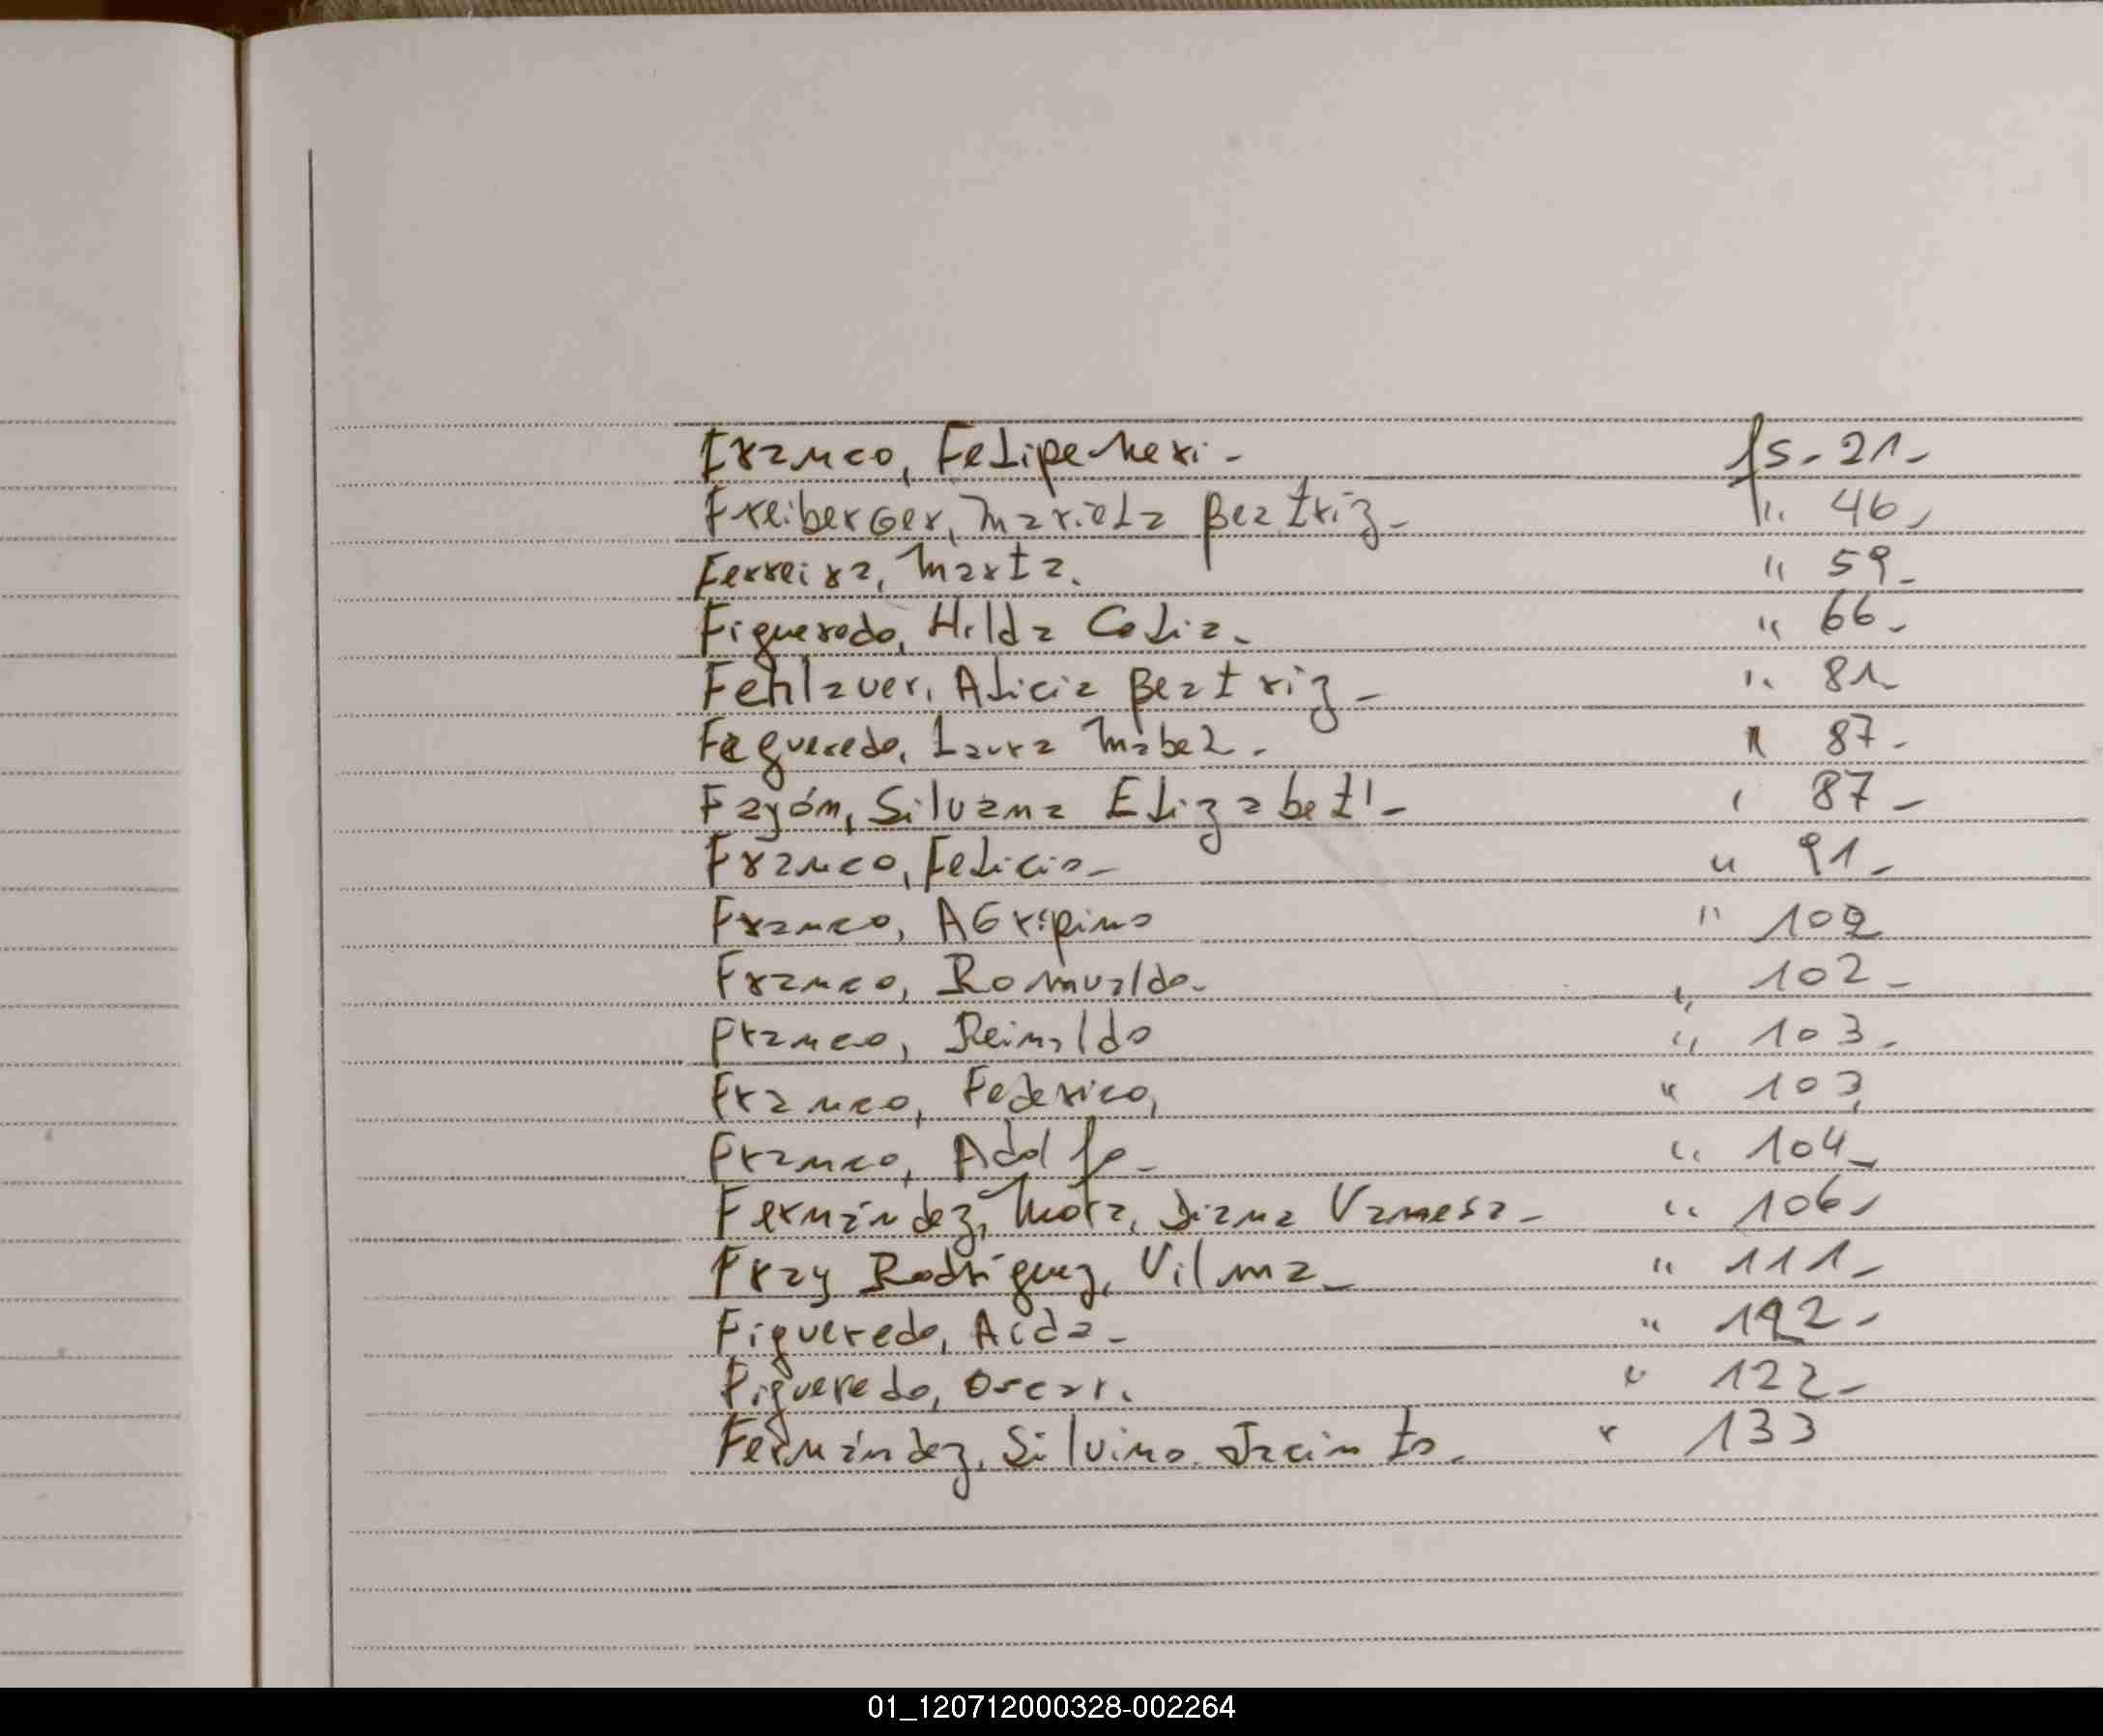 Franco, Felipe Neri - fs - 21 -
Freiberger, Mariela Beatriz - " 46 -
Ferreira, Marta. " 59 -
Figueredo, Hilda Celia. " 66 -
Fehlauer, Alicia Beatriz - " 81
Fagueredo, Laura Mabel. " 87 -
Fayón, Silvana Elizabeth - " 87 -
Franco, Felicio - " 91 -
Franco, AGripino " 102
Franco, Romualdo - " 102 -
Franco, Reinaldo " 103 -
Franco, Federico, " 103
Franco, Adolfo - " 104 -
Fernández, Mota, Diana Vanesa - " 106 -
Fray Rodríguez, Vilma - " 111 -
Figueredo, Aida - " -
Figueredo, Oscar. " 122 -
Fernández, Silvino Jacinto. " 133
01_120712000328-002264